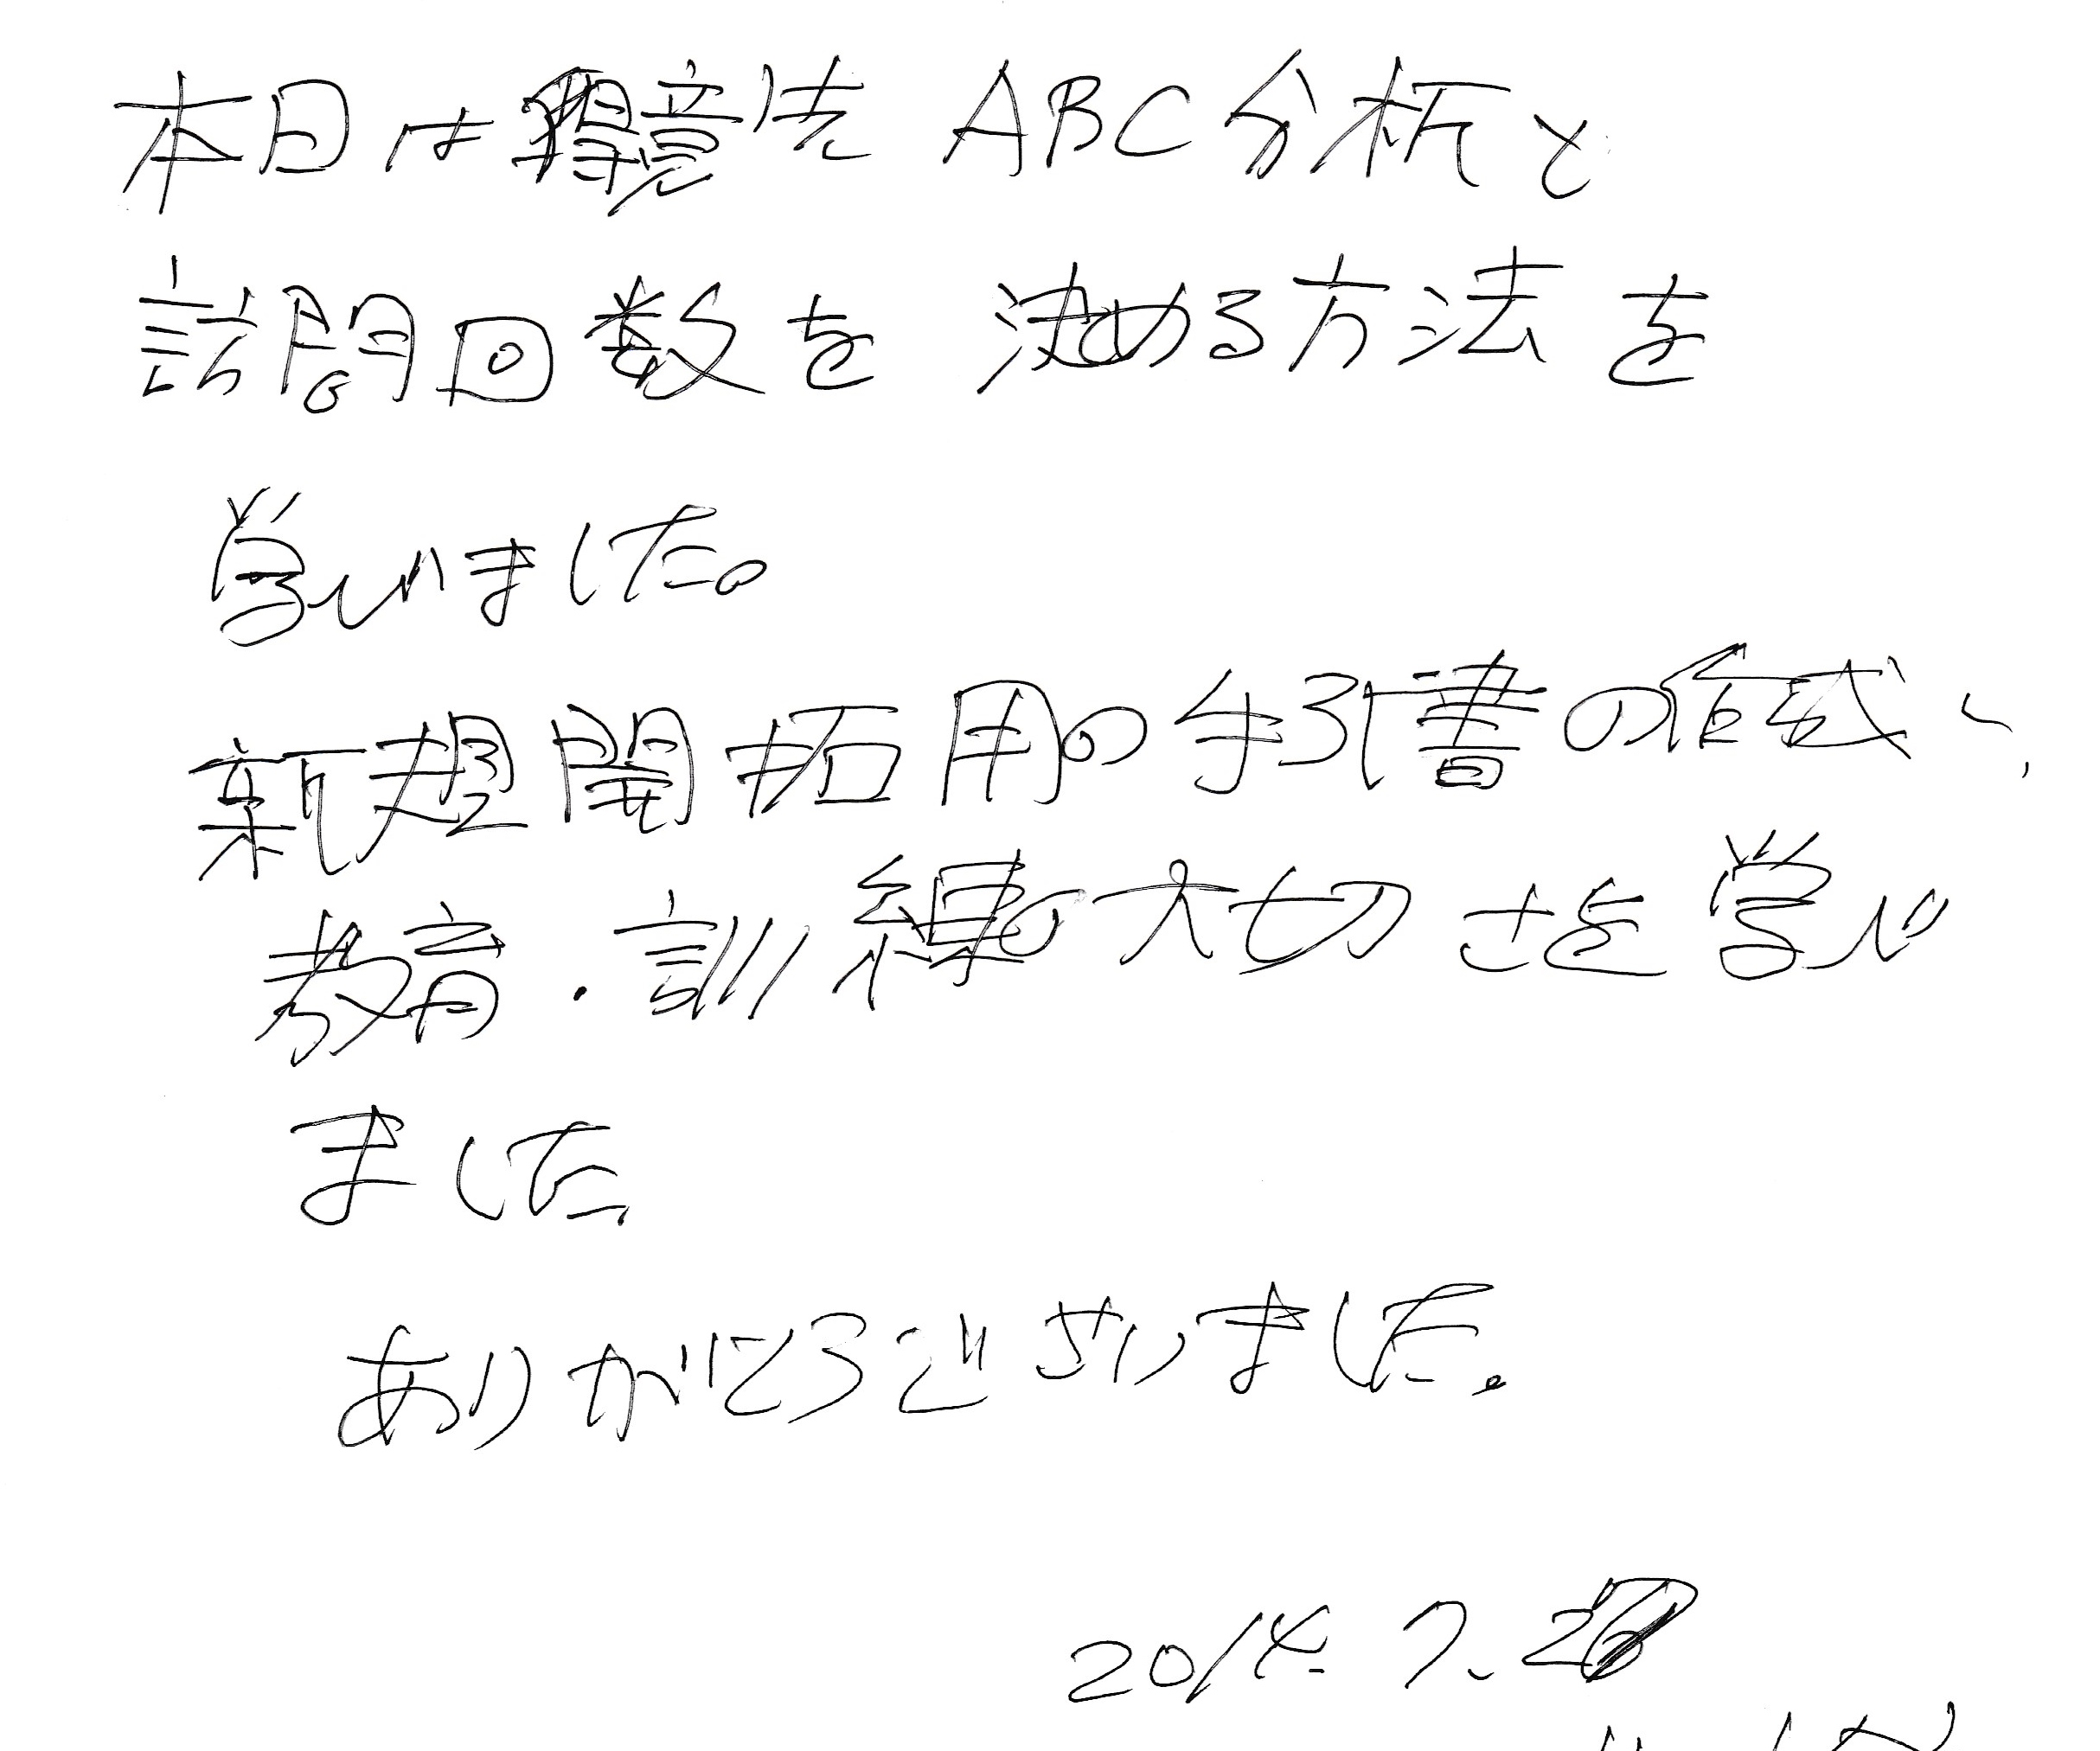 本日は得意先 ABC分析と
訪問回数を 決める方法を
学びました。
新規開拓用の手引書の作成と、
教育・訓練の大切さを学び
ました。
ありがとうございました。
2014. 7.